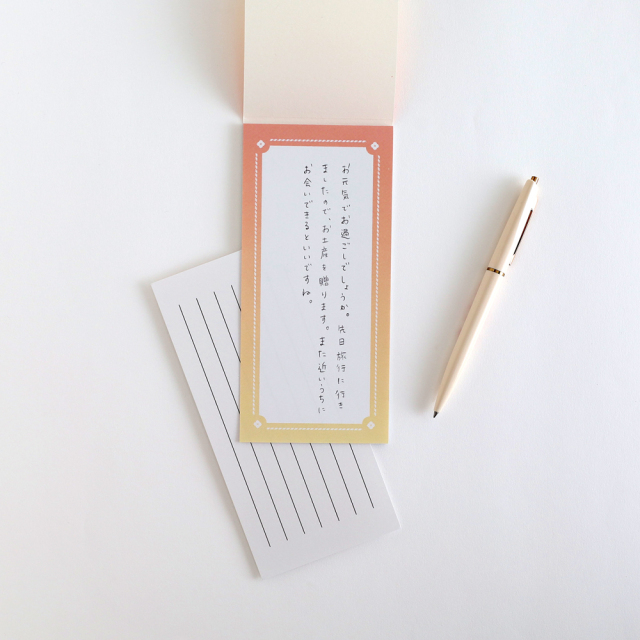 お元気でお過ごしでしょうか。先日旅行に行き
ましたので、お土産を贈ります。また近いうちに
お会いできるといいですね。